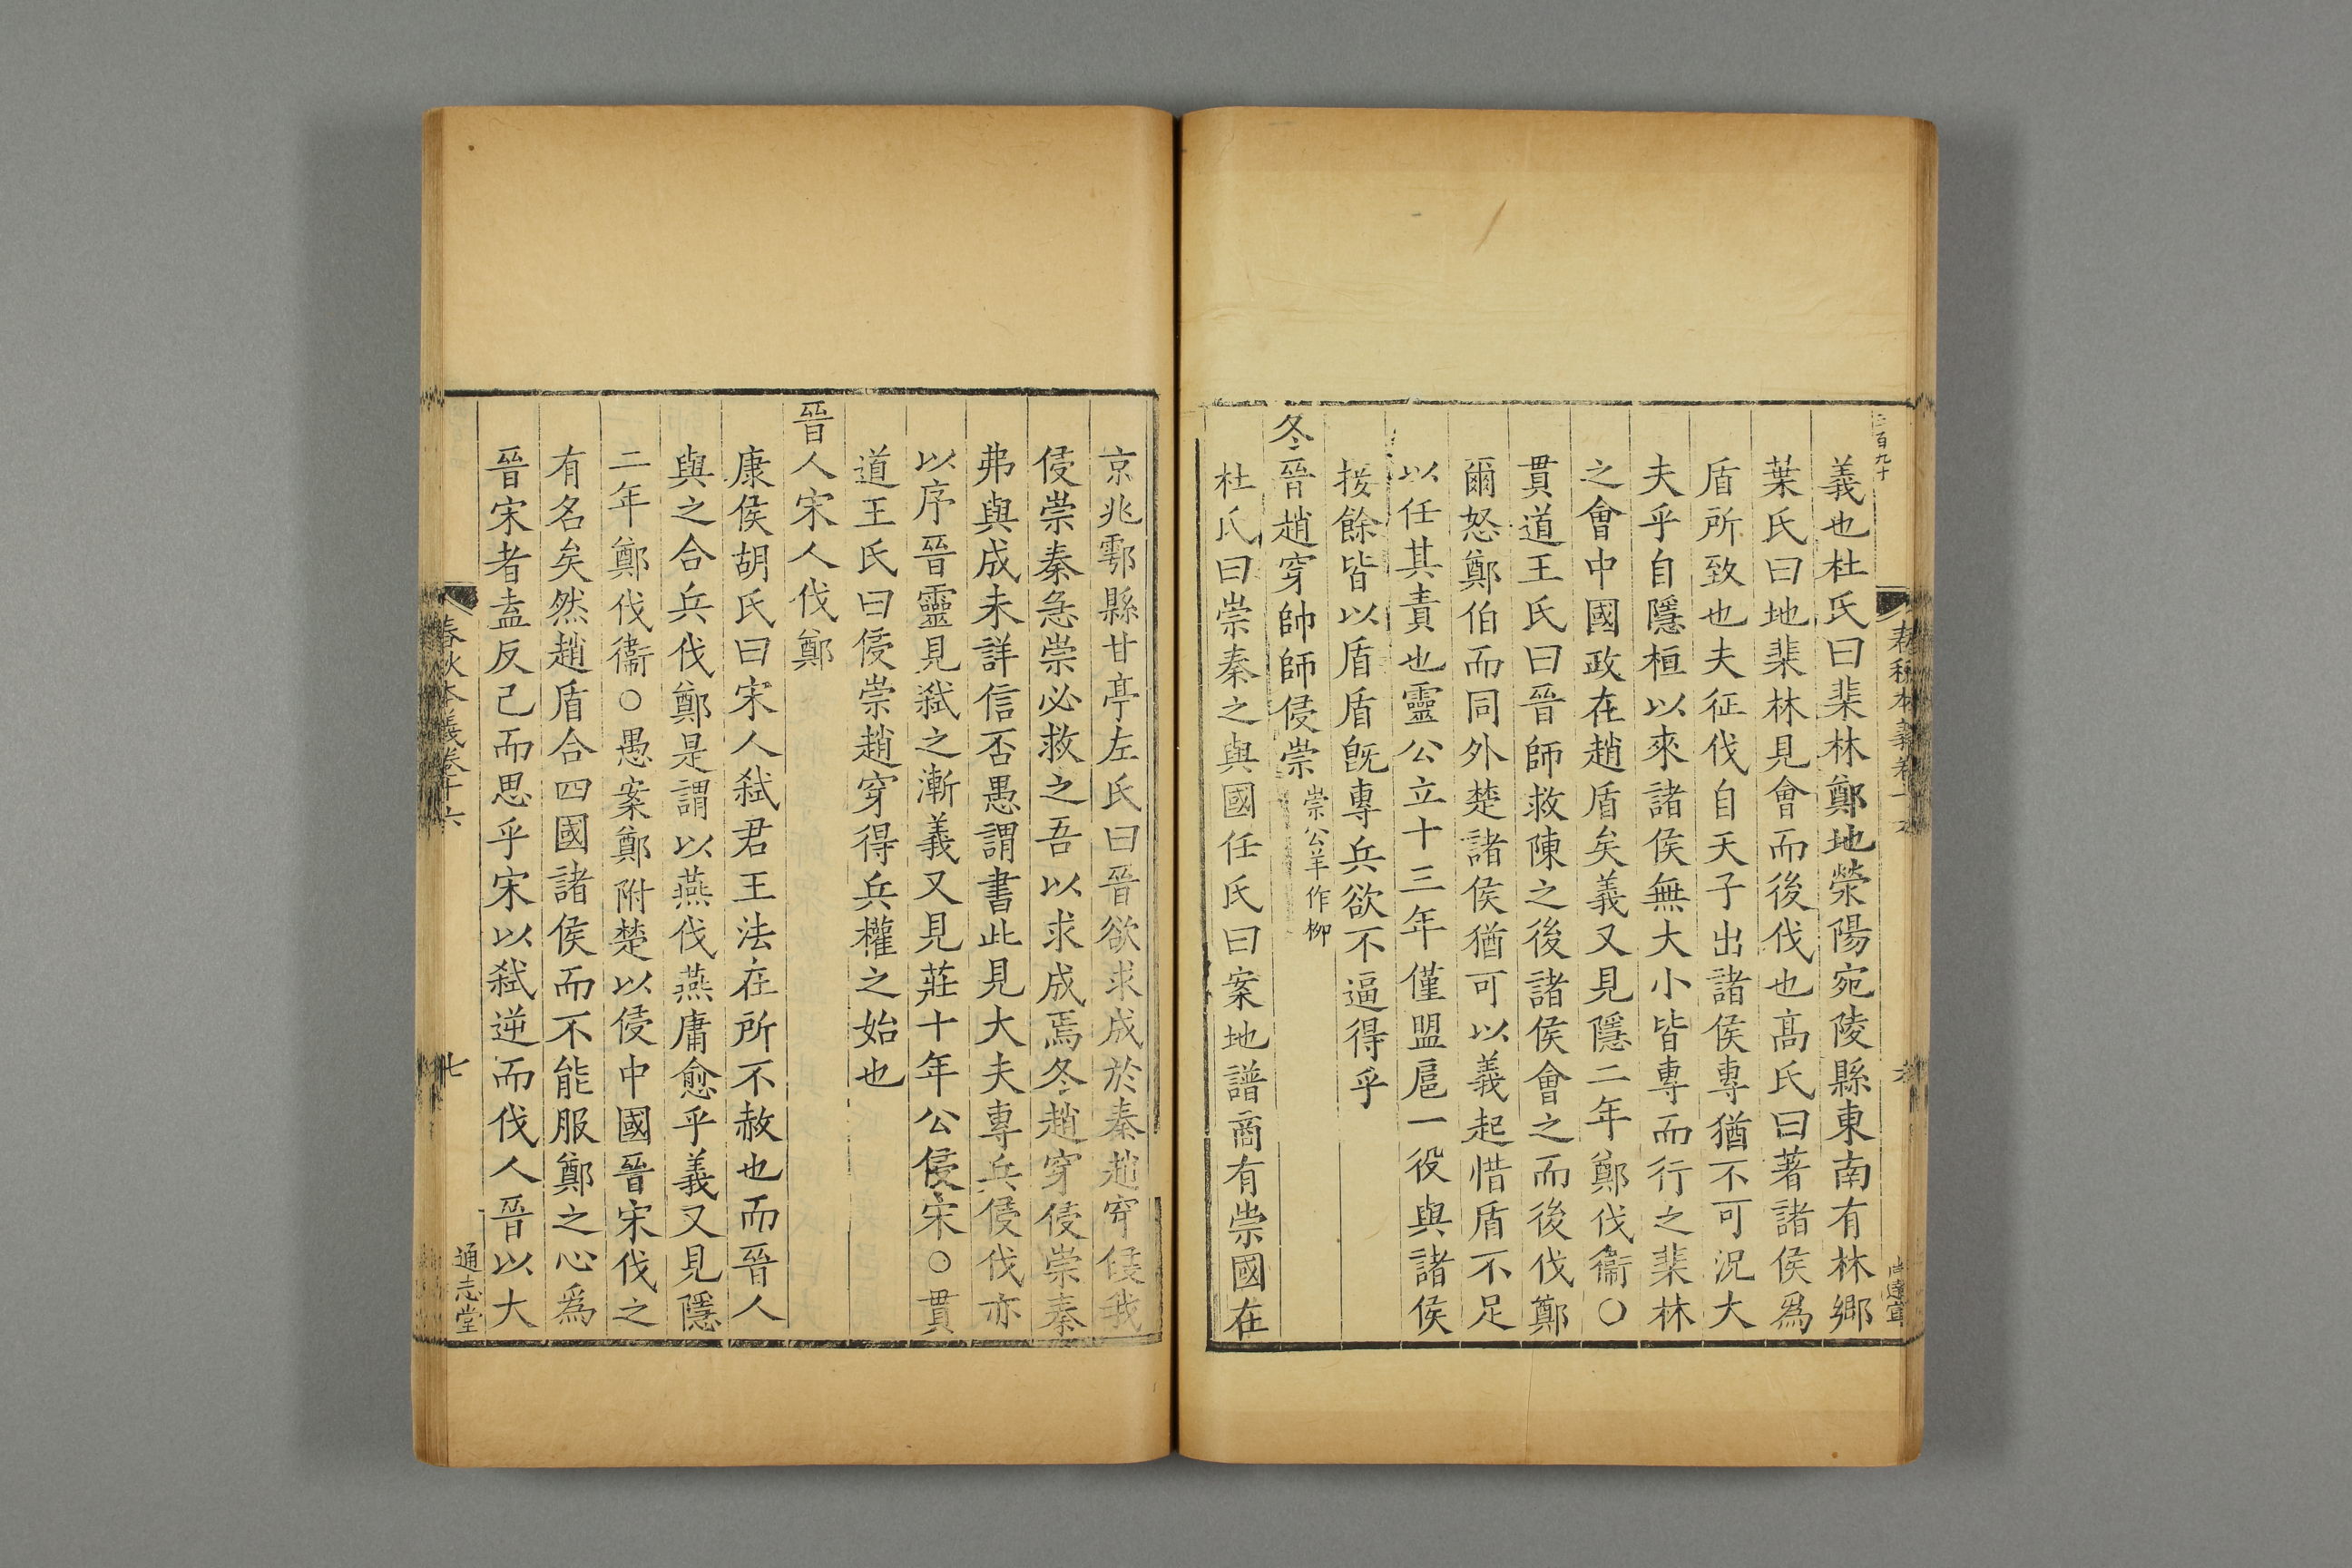 義也杜氏曰棐林鄭地滎陽宛陵縣東南有林鄉
葉氏曰地棐林見會而後伐也高氏曰著諸侯爲
盾所致也夫征伐自天子出諸侯專猶不可況大
夫乎自隱桓以來諸侯無大小皆專而行之棐林
之會中國政在趙盾矣義又見隱二年鄭伐衞○
貫道王氏曰晉師救陳之後諸侯會之而後伐鄭
爾怒鄭伯而同外楚諸侯猶可以義起惜盾不足
以任其責也靈公立十三年僅盟扈一役與諸侯
接餘皆以盾盾旣專兵欲不逼得乎
冬晉趙穿帥師侵崇崇公羊作柳
杜氏曰崇秦之與國任氏曰案地譜商有崇國在
京兆鄠縣甘亭左氏曰晉欲求成於秦趙穿侵我
侵崇秦急崇必救之吾以求成焉冬趙穿侵崇秦
弗與成未詳信否愚謂書此見大夫專兵侵伐亦
以序晉靈見弒之漸義又見莊十年公侵宋○貫
道王氏曰侵崇趙穿得兵權之始也
晉人宋人伐鄭
康侯胡氏曰宋人弒君王法在所不赦也而晉人
與之合兵伐鄭是謂以燕伐燕庸愈乎義又見隱
二年鄭伐衞○愚案鄭附楚以侵中國晉宋伐之
有名矣然趙盾合四國諸侯而不能服鄭之心爲
晉宋者盍反己而思乎宋以弒逆而伐人晉以大
春秋本義卷十六
七
通志堂